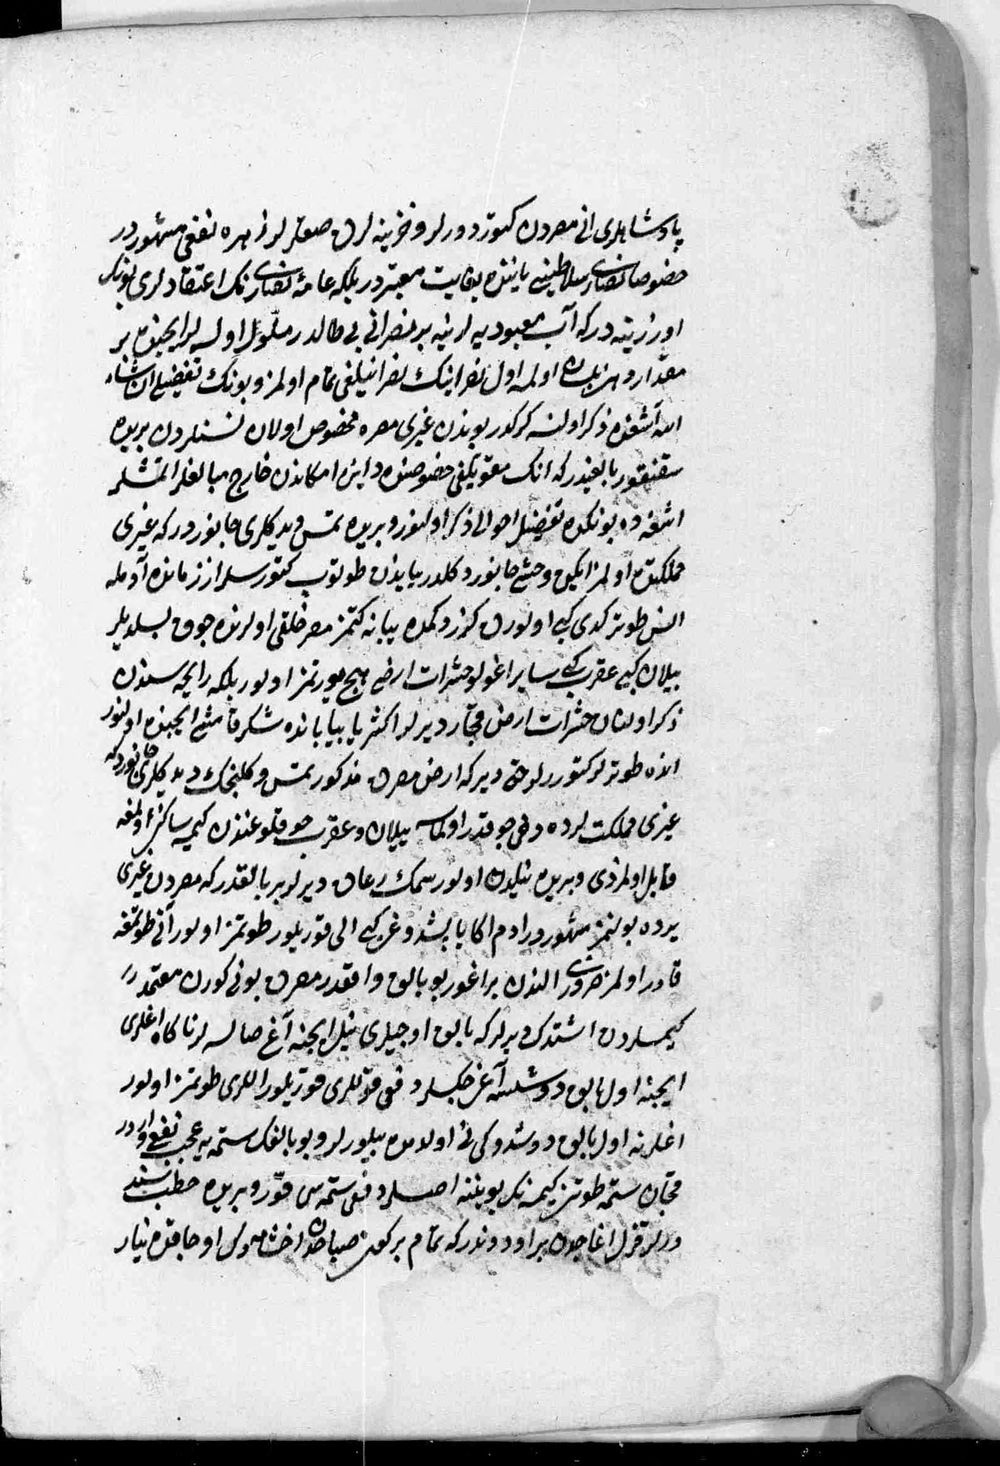 پادشاهلری انی مصردن کتوردورلر و خزینه لرنده صقلرلر زهره نفعی مشهوردر
خصوصا نصاری سلاطینی یاننده بغایت معتبردر بلکه عامۀ نصارینک اعتقادلری بونک
اوزرینه درکه آب معبودیه لرینه بر نصرانی بی طالدرملو اولسه لر ایچنده بر
مقدار دهن بلسان اولمسه اول نصرانینک نصرانیلغی تمام اولمز و بونک تفصیلی ان شاء
الله اشغده ذکر اولنسه کرکدر بوندن غیری مصره مخصوص اولان نسنلردن بریده
سقنقور بالغیدرکه انک مقویلغی خصوصنده دایرۀ امکاندن خارج مبالغلر ایتمشلر
اشغه ده بونکده تفصیل احوالی ذکر اولنور و بریده نمس دیدکلری جانوردرکه غیری
مملکتده اولمز ایکن وحشی جانور دکلدر یابذن طوتوب کتورسلر از زمانده آدمله
انس طوتر کدی کبی اولور کزر دکمده یبانه کتمز مصر خلقی اولرنده چوق بسلدیلر
ییلان کبی عقرب کبی سایر اغولو حشرات ارض هیچ یورتمز اولور بلکه رایحه سندن
ذکر اولنان حشرات ارض قچار دیرلر اکثریا بیابانده شکر قامشی ایچنده اولنور
انده طوترلر کتوررلر حق دیرکه ارض مصرده مذکور نمس و کلنجک دیدکلری جانورکه
غیری مملکت لرده دخی چوقدر اولماسه ییلان و عقرب چوقلوغندن کیمسه ساکن اولمغه
قابل اولمزدی و بریده نیلده اولور سمک رعاد دیرلر بر بالقدرکه مصردن غیری
یرده بولنمز مشهوردر ادم اکا یاپشدوغی کبی الی قوریلور طوتمز اولور انی طوتمغه
قادر اولمز ضروری الندن براغور بو بالق واقعدر مصرده بونی کورن معتمد
کیمسلردن اشتدک دیرلرکه بالق اوجیلری نیل ایچنه آغ صالسه لر ناکاه اغلری
ایچنه اول بالق دوشسه آغی چکلرده فی قوللری قوریلور اللری طوتمز اولور
اغلرینه اول بالق دوشدوکنی اولدمده بیلورلر و بو بالغک ستمه یه عجب نفعی واردر
قچان ستمه طوتر کیمسه نک بویننه اصلر دفعی ستمه سی قور و بریده حطب سند
دیرلر قزل اغاجدن بر اودوندرکه تمام بر کون صباحدن اخشامه دک اوجاقده ینار